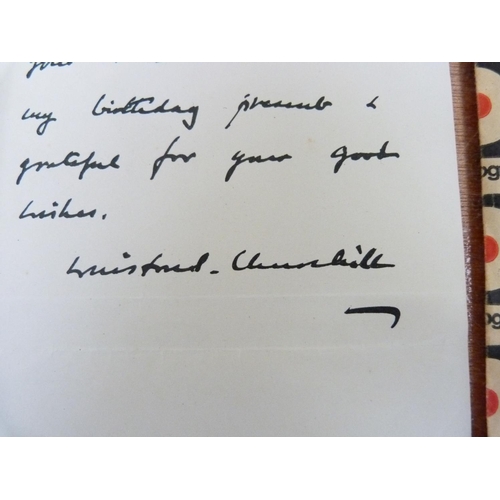 your
my birthday present &
grateful for your good
wishes.
Winston S. Churchill
og
og